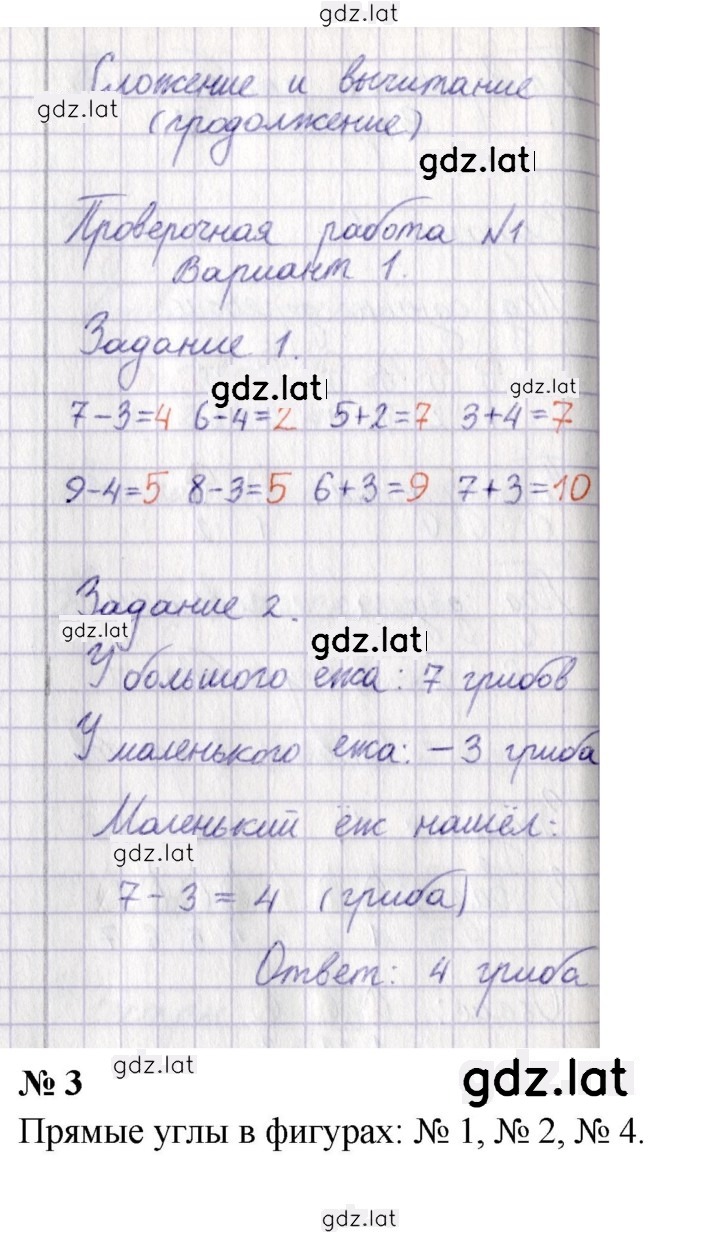 gdz.lat
Сложение и вычитание
gdz.lat
(продолжение)
gdz.lat
Проверочная работа №1
Вариант 1.
Задание 1.
gdz.lat
gdz.lat
7-3=4 6-4=2 5+2=7 3+4=7
9-4=5 8-3=5 6+3=9 7+3=10
Задание 2.
gdz.lat
gdz.lat
У большого ежа: 7 грибов
У маленького ежа: -3 гриба
Маленький ёж нашёл:
gdz.lat
7-3=4 (гриба)
Ответ: 4 гриба
gdz.lat
№ 3
gdz.lat
Прямые углы в фигурах: № 1, № 2, № 4.
gdz.lat